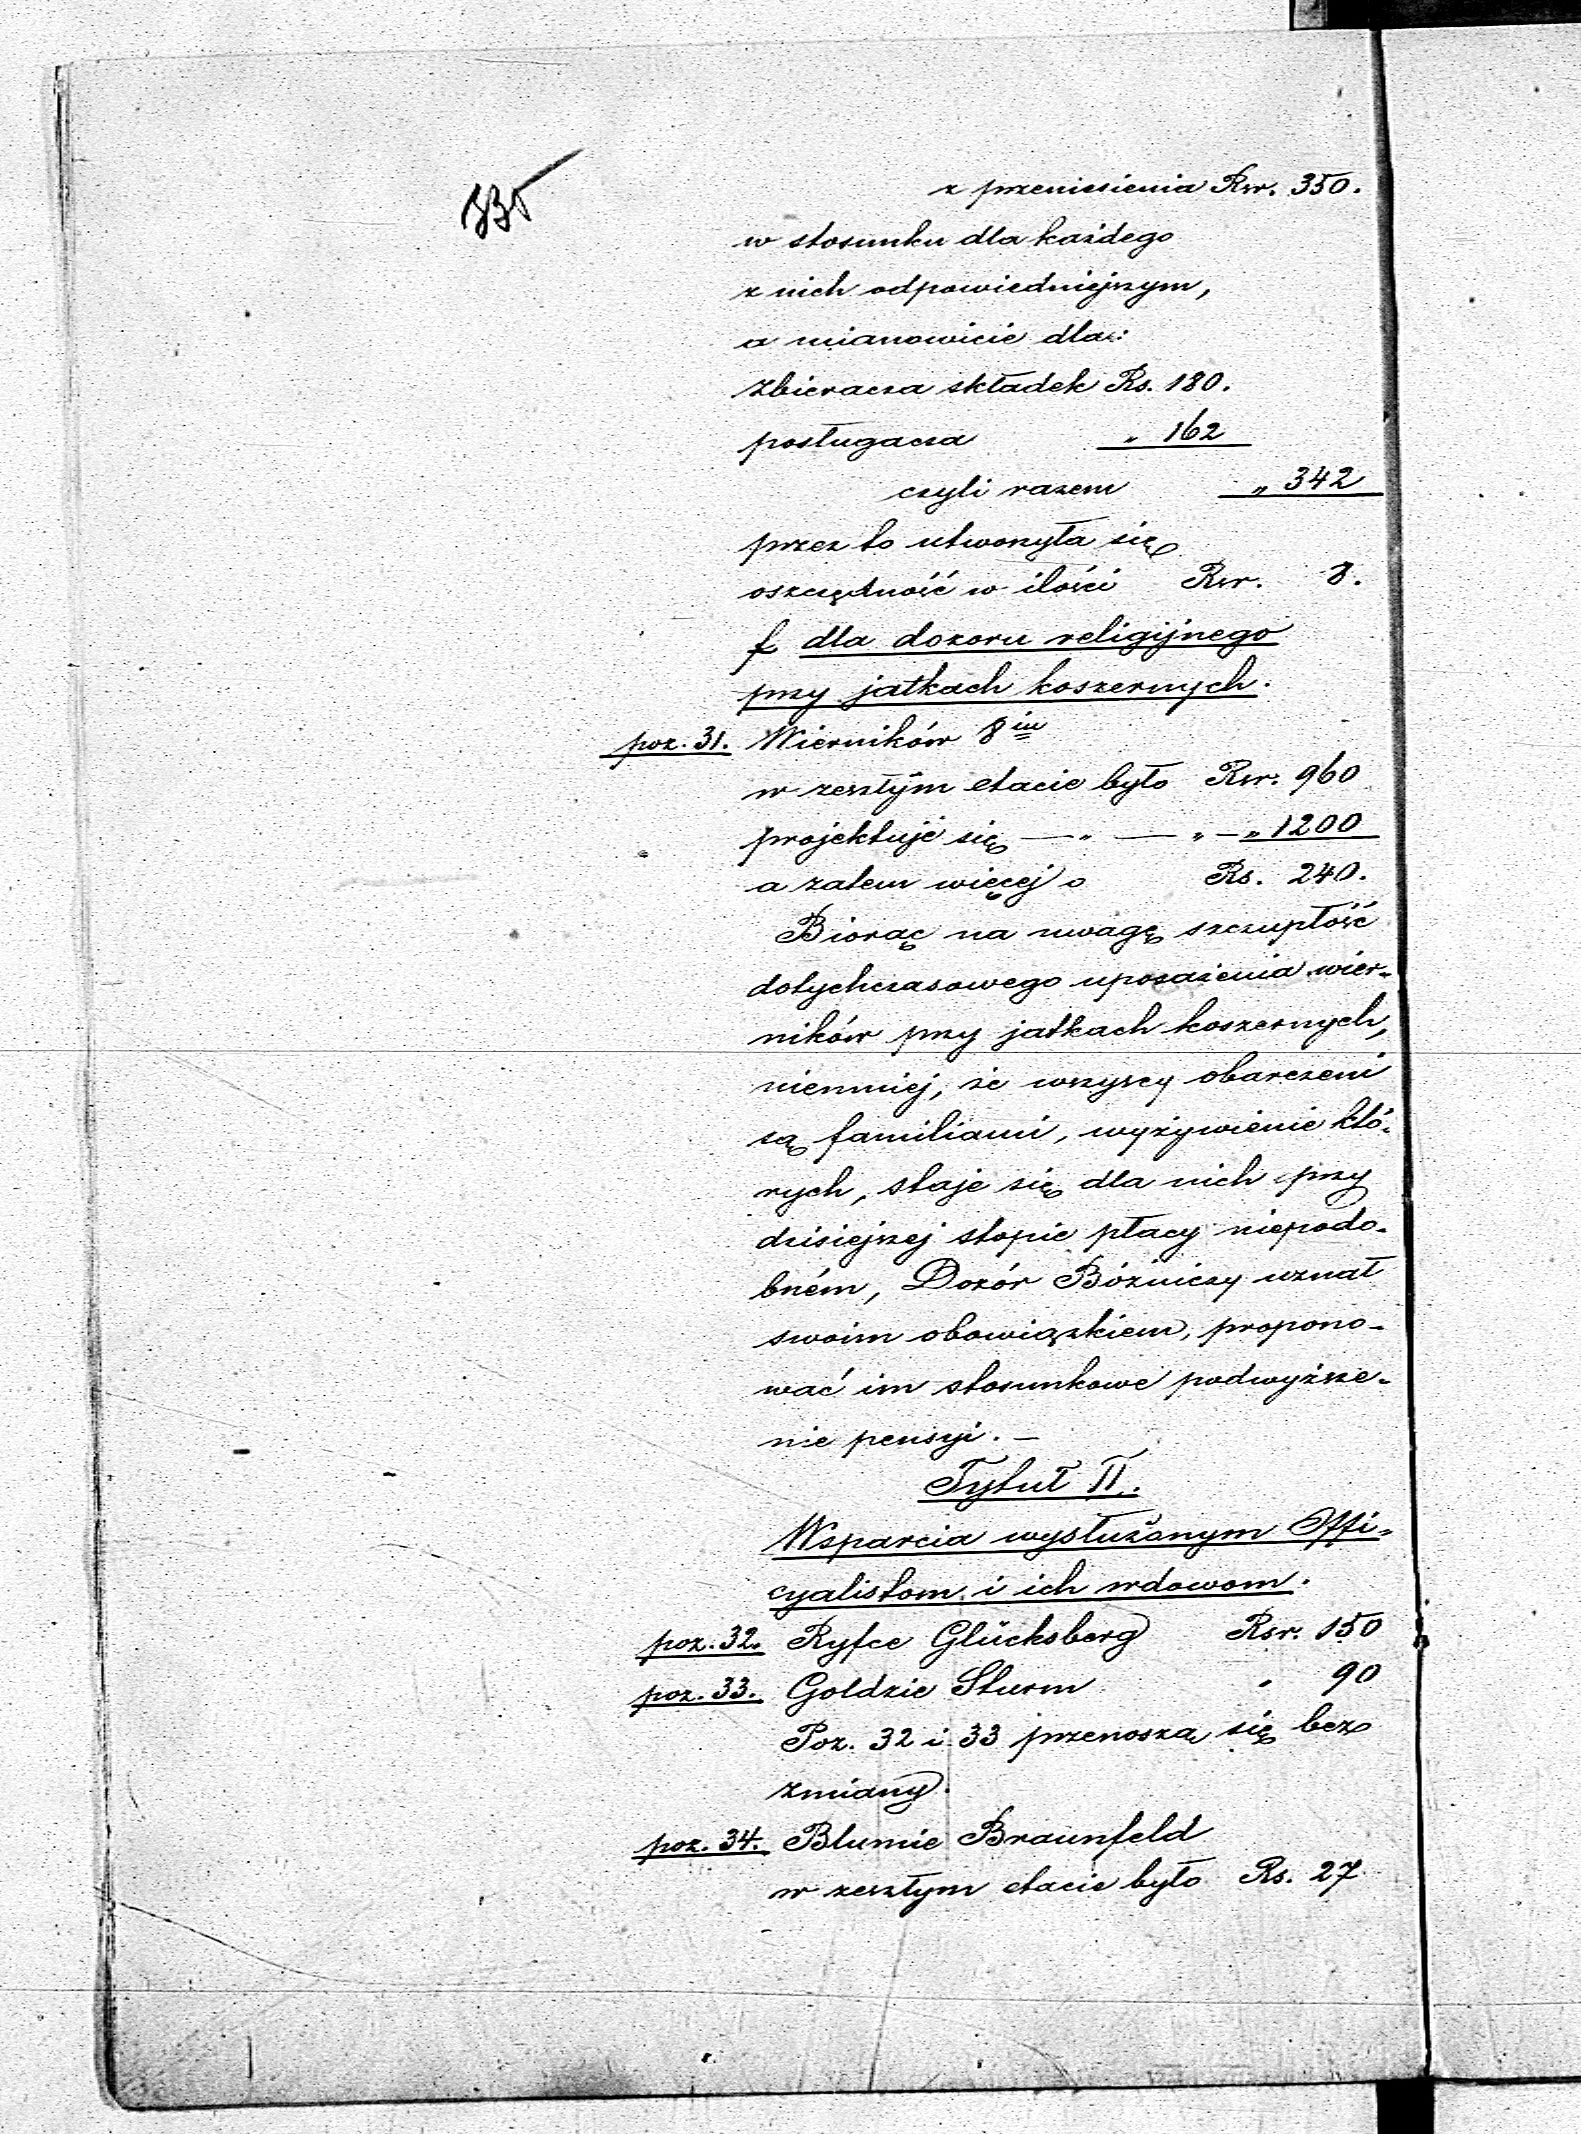 335
z przeniesienia Rsr. 350.
w stosunku dla każdego
z nich odpowiedniejszym,
a mianowicie dla:
Zbieracza składek Rs. 180.
posługacza " 162
czyli razem " 342
przez to utworzyła się
oszczędność w ilości Rsr. 8.
f dla dozoru religijnego
przy jatkach koszernych.
poz. 31. Wierników 8iu
w zeszłym etacie było Rsr. 960
projektuje się — " — " — " 1200
a zatem więcej o Rs. 240.
Biorąc na uwagę szczupłość
dotychczasowego uposażenia wier-
ników przy jatkach koszernych,
niemniej, że wszyscy obarczeni
są familiami, wyżywienie któ-
rych, staje się dla nich przy
dzisiejszej stopie płacy niepodo-
bném, Dozór Bóźniczy uznał
swoim obowiązkiem, propono-
wać im stosunkowe podwyższe-
nie pensyi. —
Tytuł II.
Wsparcia wysłużonym Offi-
cyalistom i ich wdowom.
poz. 32. Ryfce Glücksberg Rsr. 150
poz. 33. Goldzie Sturm " 90
Poz. 32 i 33 przenoszą się bez
zmiany.
poz. 34. Blumie Braunfeld
w zeszłym etacie było Rs. 27